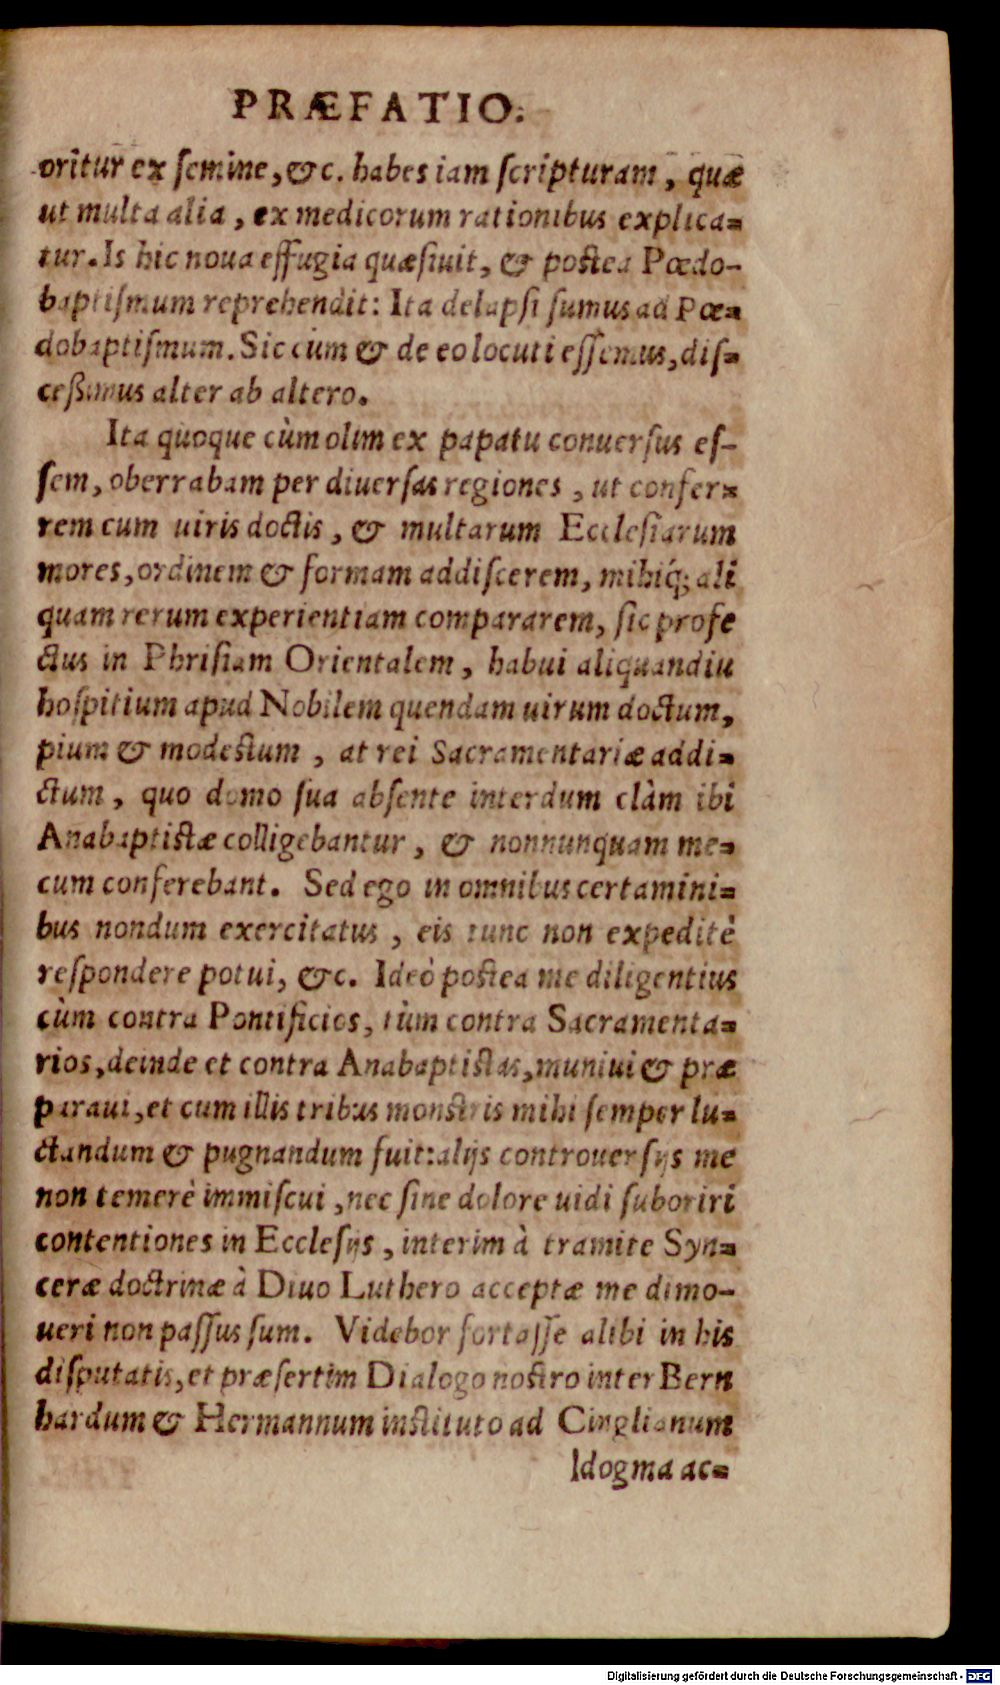 PRÆFATIO.
oritur ex semine, &c. habes iam scripturam, quæ
ut multa alia, ex medicorum rationibus explica=
tur. Is hic noua effugia quæsiuit, & postea Pœdo-
baptismum reprehendit: Ita delapsi sumus ad Pœ=
dobaptismum. Sic cùm & de eo locuti essemus, dis=
ceßimus alter ab altero.
Ita quoque cùm olim ex papatu conuersus es-
sem, oberrabam per diuersas regiones, ut confer=
rem cum uiris doctis, & multarum Ecclesiarum
mores, ordinem & formam addiscerem, mihiq́; ali
quam rerum experientiam compararem, sic profe
ctus in Phrisiam Orientalem, habui aliquandiu
hospitium apud Nobilem quendam uirum doctum,
pium & modestum, at rei Sacramentariæ addi=
ctum, quo domo sua absente interdum clàm ibi
Anabaptistæ colligebantur, & nonnunquam me=
cum conferebant. Sed ego in omnibus certamini=
bus nondum exercitatus, eis tunc non expeditè
respondere potui, &c. Ideò postea me diligentius
cùm contra Pontificios, tùm contra Sacramenta=
rios, deinde et contra Anabaptistas, muniui & præ
paraui, et cum illis tribus monstris mihi semper lu=
ctandum & pugnandum fuit: alijs controuersijs me
non temerè immiscui, nec sine dolore uidi suboriri
contentiones in Ecclesijs, interim à tramite Syn=
ceræ doctrinæ à Diuo Luthero acceptæ me dimo-
ueri non passus sum. Videbor fortasse alibi in his
disputatis, et præsertim Dialogo nostro inter Bern
hardum & Hermannum instituto ad Cinglianum
Idogma ac=
Digitalisierung gefördert durch die Deutsche Forschungsgemeinschaft - DFG